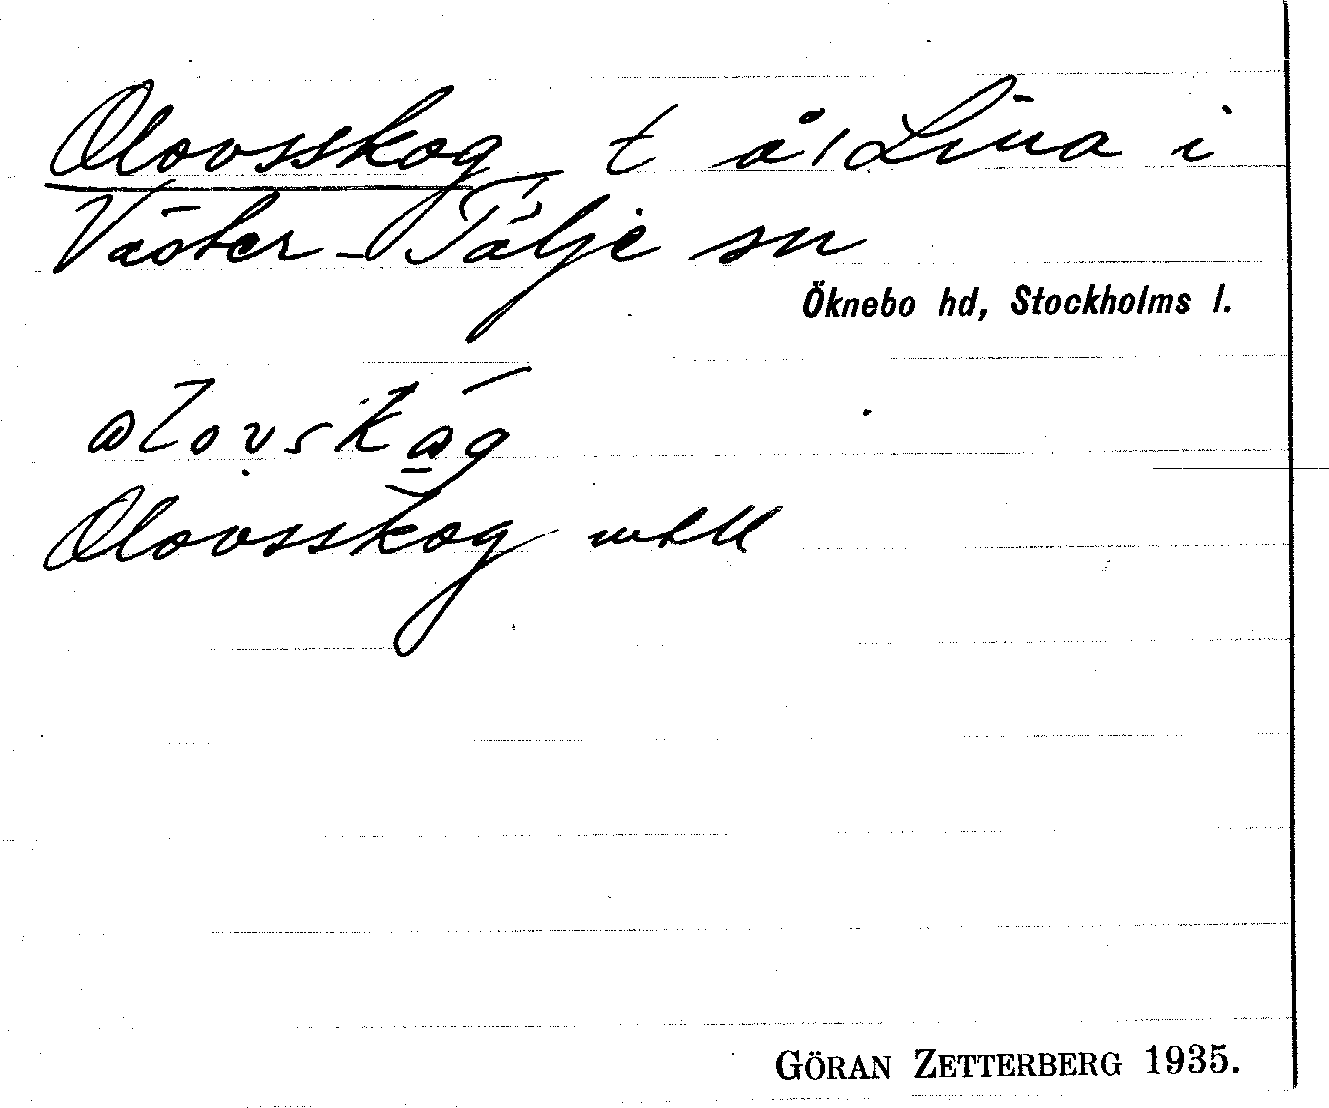 Olovsskog t å/ Lina i
Väster-Tälje sn
Öknebo hd, Stockholms l.
Olovsskog
GÖRAN ZETTERBERG 1935.